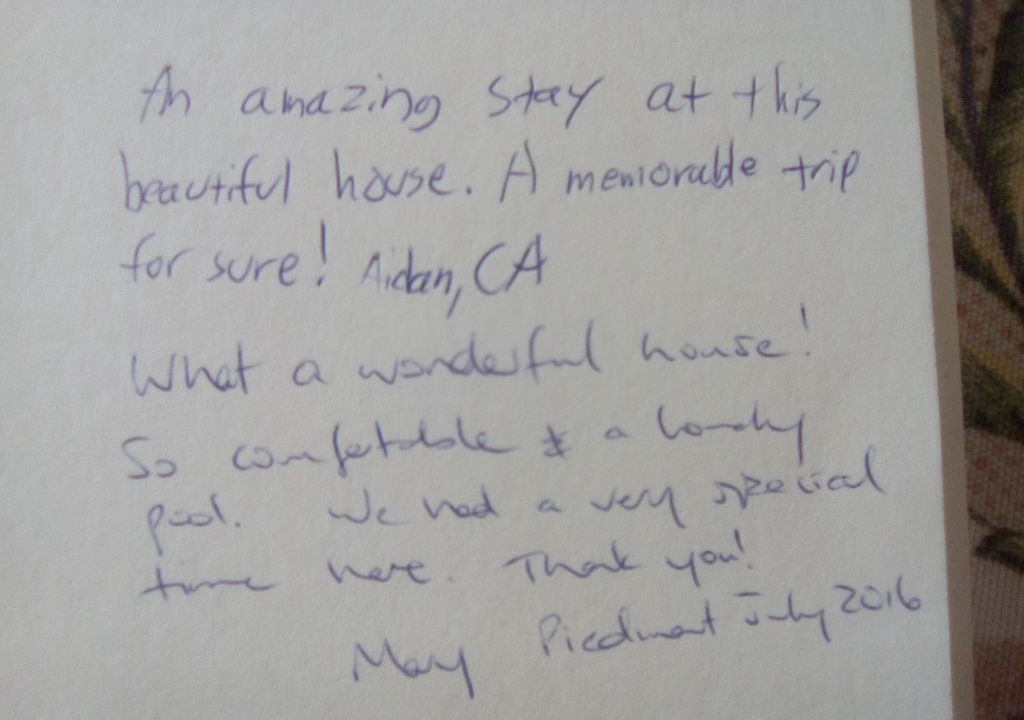 An amazing stay at this
beautiful house. A memorable trip
for sure! Aidan, CA
What a wonderful house!
So comfortable & a lovely
pool. We had a very special
time here. Thank you!
Piedmont July 2016